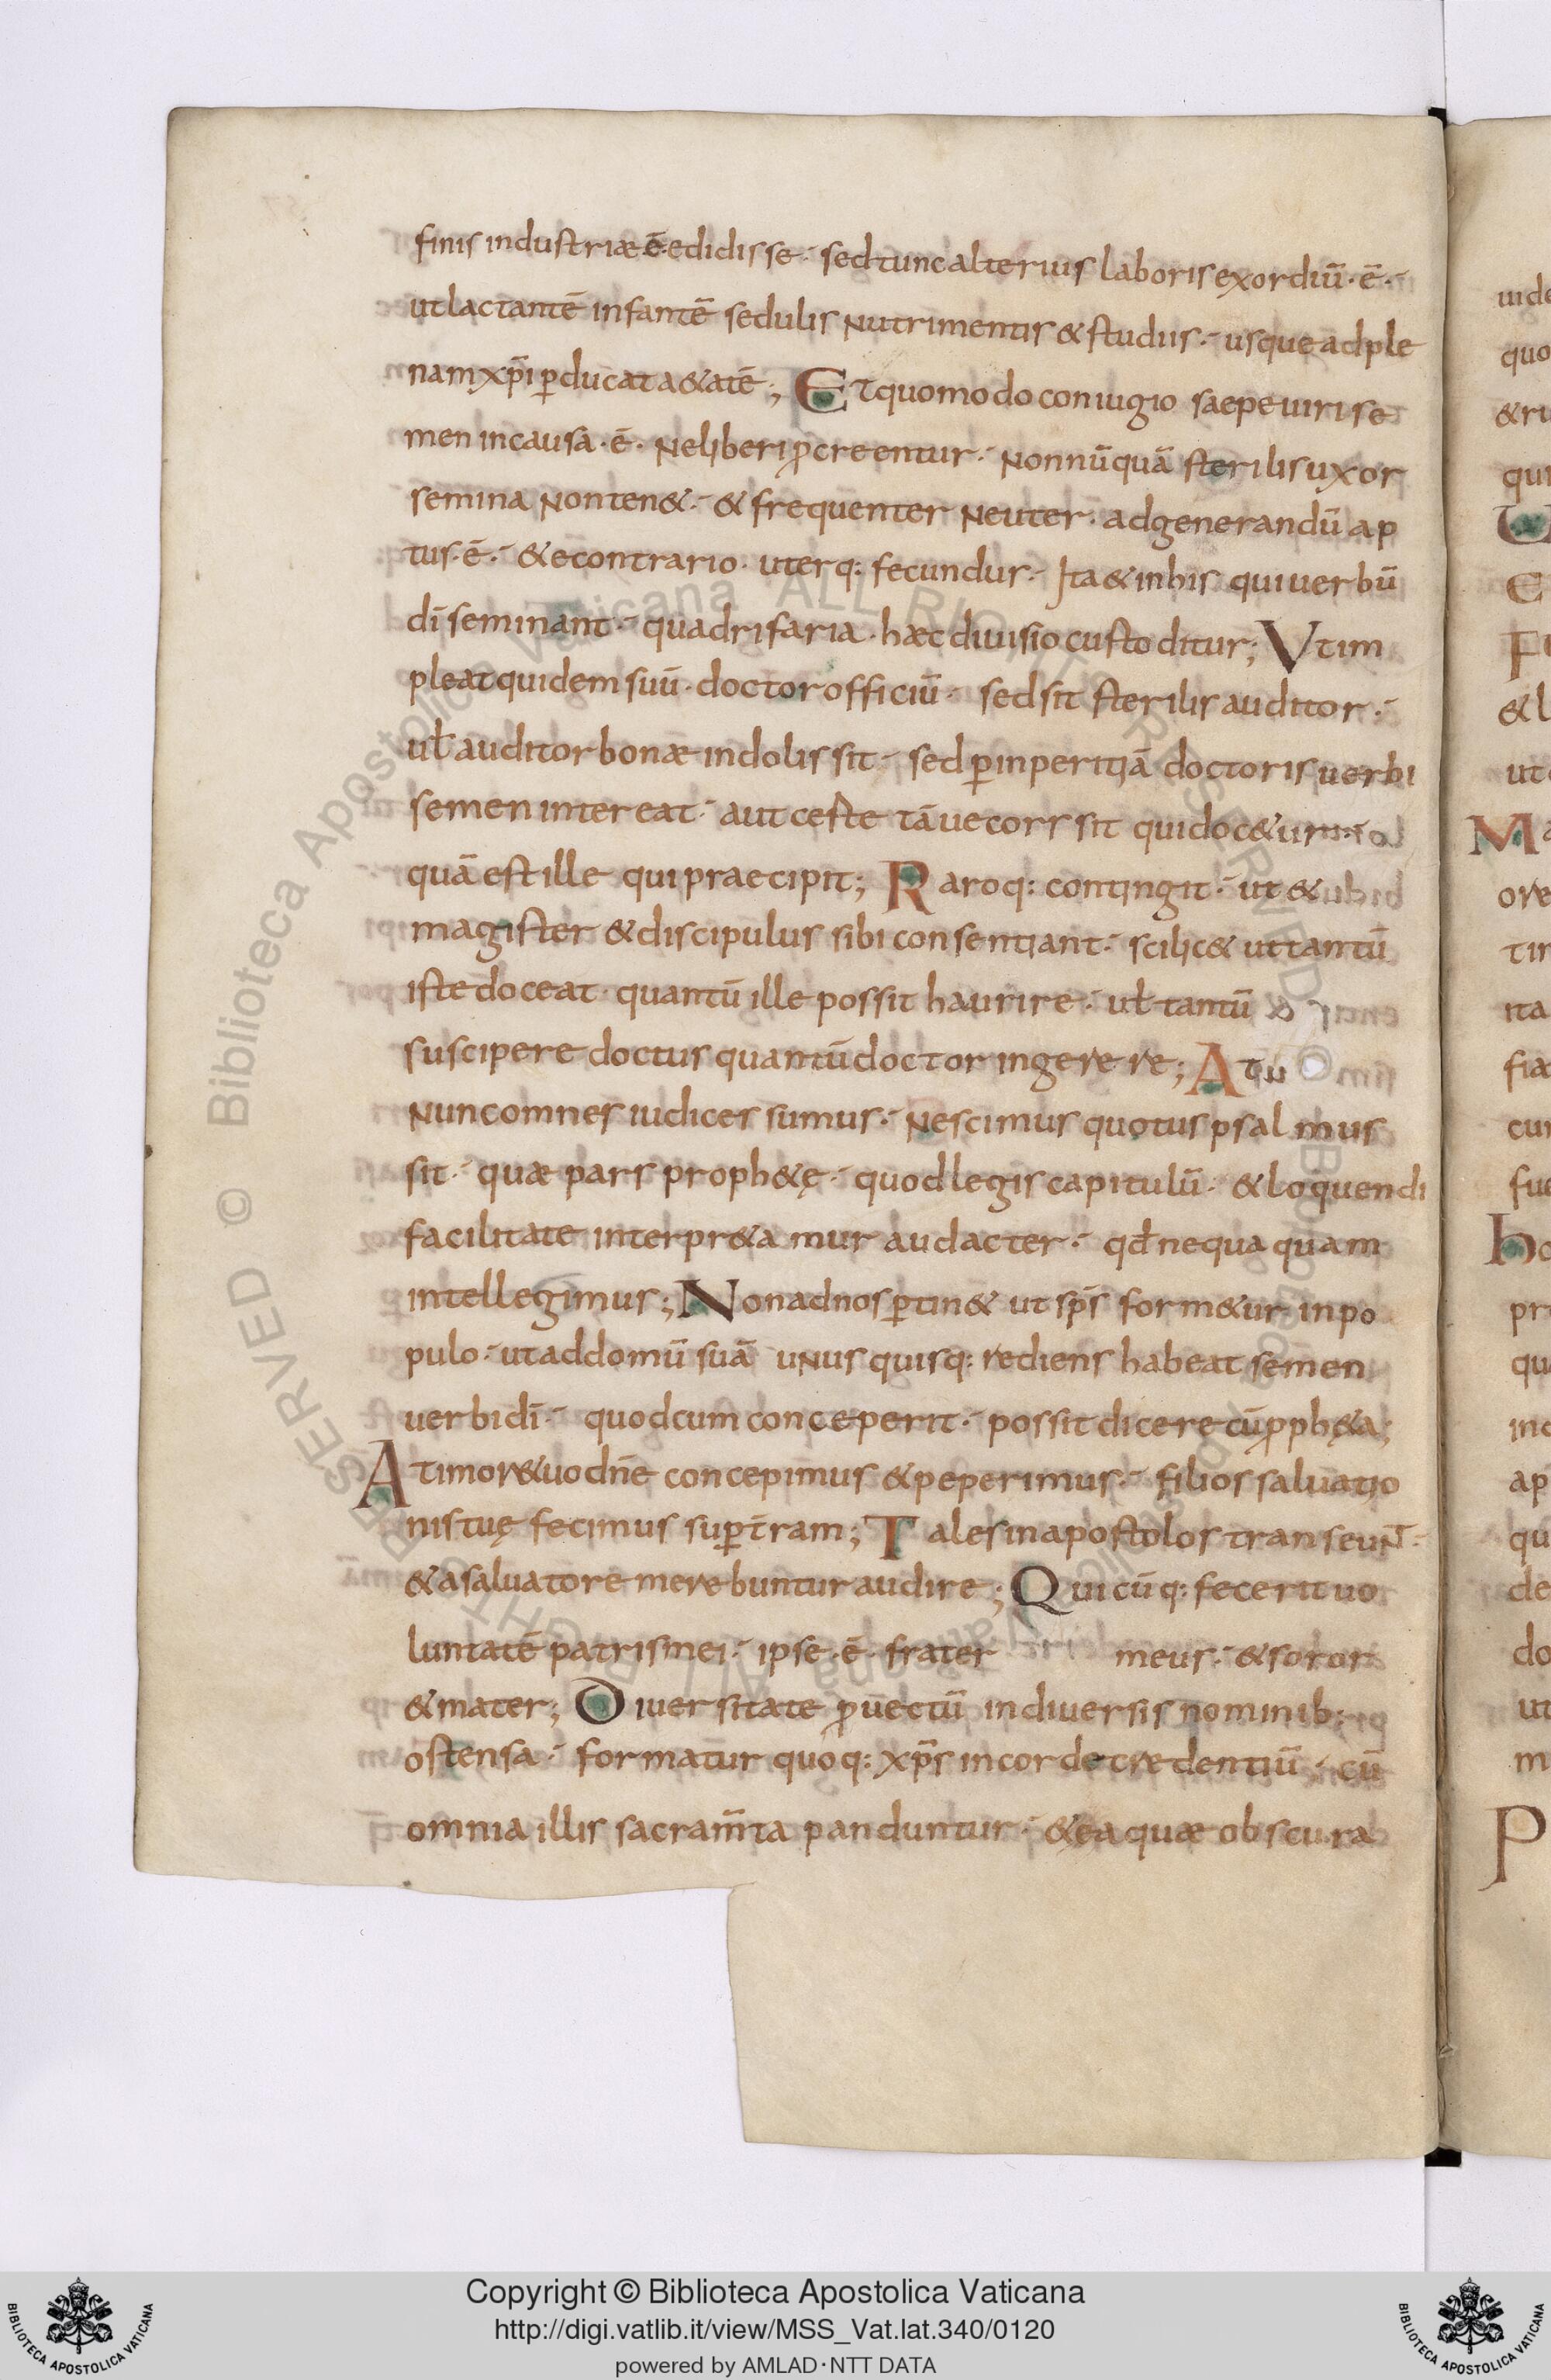 finis industriæ ē. edidisse. sed tunc alterius laboris exordiū. ē.
ut lactantē infantē sedulis nutrimentis & studiis. usque ad ple
nam xp̄i ꝑducat a&atē; Et quomodo coniugio saepe uiri se
men in causa. ē. ne liberi ꝓcreentur. nonnūquā sterilis uxor
semina non ten&. & frequenter neuter. ad generandū ap
tus. ē. & e contrario. uterq: fecundus. Ita & in his qui uerbū
dī seminant. quadrifaria. hæc diuisio custoditur; Vt im
pleat quidem suū. doctor officiū. sed sit sterilis auditor.
uł auditor bonæ indolis sit. sed ꝑ inperitiā doctoris uerbi
semen intereat. aut ceste tā uecors sit qui doc&ur
quā est ille qui praecipit; Raroq: contingit. ut &
magister & discipulus sibi consentiant. scilic& ut tantū
iste doceat. quantū ille possit haurire. uł tantū
suscipere doctus quantū doctor ingerere; At ū
nunc omnes iudices sumus. nescimus quotus psalmus
sit. quæ pars proph&ę. quod legis capitulū. & loquendi
facilitate interpr&amur audacter. qđ nequaquam
intellegimus; Non ad nos ꝑtin& ut sp̄s form&ur in po
pulo. ut ad domū suā unusquisq: rediens habeat semen
uerbi dī. quod cum conceperit. possit dicere cū ꝓph&a;
A timor& uo dn̄e concepimus & peperimus. filios saluatio
nis tuę fecimus suꝑ t̄ram; Tales in apostolos transeunt.
& a saluatore merebuntur audire; Quicūq: fecerit uo
luntatē patris mei. ipse. ē. frater meus. & soror
& mater; Diuersitate ꝓuectū in diuersis nominib;
ostensa. formatur quoq: xp̄s in corde credentiū. cū
omnia illis sacram̄ta panduntur. & ea quæ obscura
Copyright © Biblioteca Apostolica Vaticana
http://digi.vatlib.it/view/MSS_Vat.lat.340/0120
powered by AMLAD·NTT DATA
BIBLIOTECA APOSTOLICA VATICANA
BIBLIOTECA APOSTOLICA VATICANA